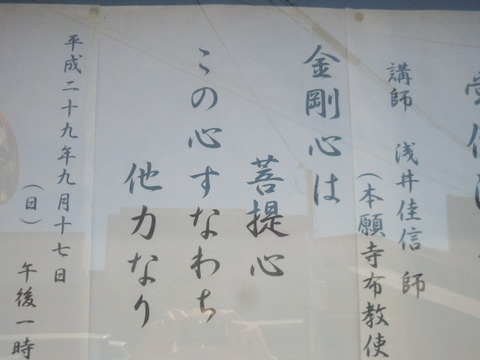 講師 浅井佳信 師
（本願寺布教使
金剛心は
菩提心
この心すなわち
他力なり
平成二十九年九月十七日
（日） 午後一時